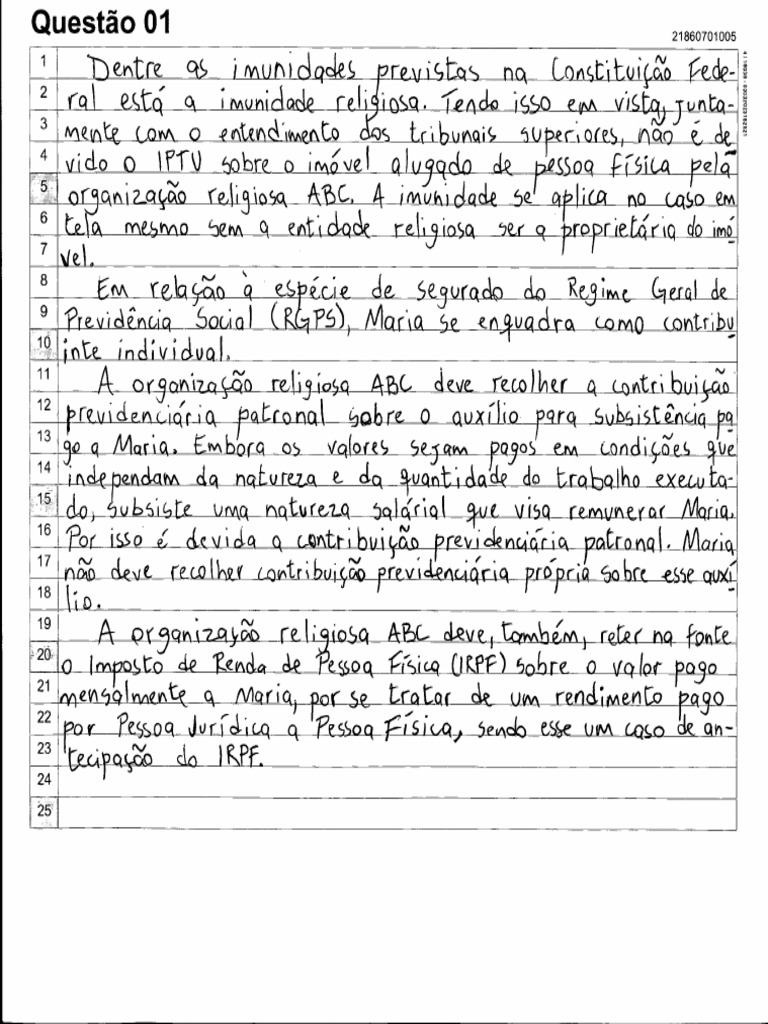 Questão 01
21860701005
1 Dentre as imunidades previstas na Constituição Fede-
2 ral está a imunidade religiosa. Tendo isso em vista, junta-
3 mente com o entendimento dos tribunais superiores, não é de
4 vido o IPTU sobre o imóvel alugado de pessoa física pela
5 organização religiosa ABC. A imunidade se aplica no caso em
6 tela mesmo sem a entidade religiosa ser a proprietária do imó
7 vel.
8 Em relação à espécie de segurado do Regime Geral de
9 Previdência Social (RGPS), Maria se enquadra como contribu
10 inte individual.
11 A organização religiosa ABC deve recolher a contribuição
12 previdenciária patronal sobre o auxílio para subsistência pa
13 go a Maria. Embora os valores sejam pagos em condições que
14 independam da natureza e da quantidade do trabalho executa-
15 do, subsiste uma natureza salárial que visa remunerar Maria.
16 Por isso é devida a contribuição previdenciária patronal. Maria
17 não deve recolher contribuição previdenciária própria sobre esse auxí
18 lio.
19 A organização religiosa ABC deve, também, reter na fonte
20 o Imposto de Renda de Pessoa Física (IRPF) sobre o valor pago
21 mensalmente a Maria, por se tratar de um rendimento pago
22 por Pessoa Jurídica a Pessoa Física, sendo esse um caso de an-
23 tecipação do IRPF.
24
25